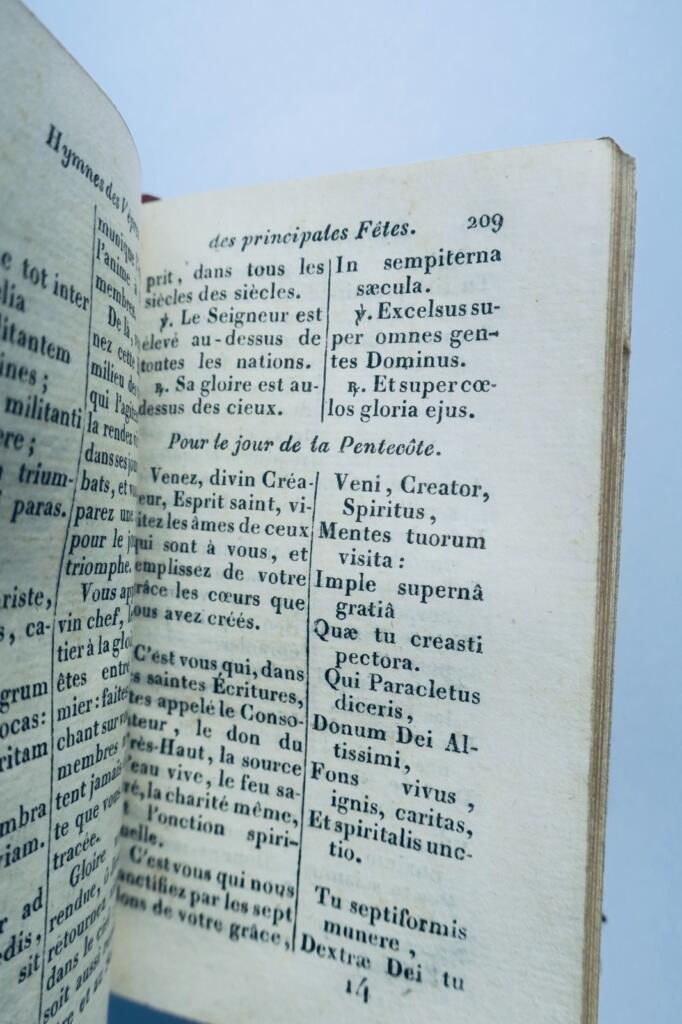 Hymnes des
e tot inter
elia
litantem
ines ;
militanti
ere ;
trium-
paras.
riste,
s, ca-
grum
ocas:
ritam
mbra
viam.
r ad
edis,
sit
munique
l'anime
membres.
De là,
nez cette
milieu de
qui l'agi
la rendez
dans ses
bats, et
parez une
pour le
triomphe.
Vous
vin chef,
tier à la
êtes entr
mier : faites
chant sur
membres
tent jamais
te que vous
tracée.
Gloire
rendue,
retournez
dans le
soit aussi
re et au
des principales Fêtes. 209
prit, dans tous les
siècles des siècles.
℣. Le Seigneur est
élevé au-dessus de
toutes les nations.
℟. Sa gloire est au-
dessus des cieux.
In sempiterna
sæcula.
℣. Excelsus su-
per omnes gen-
tes Dominus.
℟. Et super cœ-
los gloria ejus.
Pour le jour de la Pentecôte.
Venez, divin Créa-
eur, Esprit saint, vi-
itez les âmes de ceux
qui sont à vous, et
emplissez de votre
râce les cœurs que
ous avez créés.
C'est vous qui, dans
s saintes Écritures,
tes appelé le Conso-
teur, le don du
rès-Haut, la source
'eau vive, le feu sa-
ré, la charité même,
t l'onction spiri-
uelle.
C'est vous qui nous
anctifiez par les sept
ons de votre grâce,
Veni, Creator,
Spiritus,
Mentes tuorum
visita :
Imple supernâ
gratiâ
Quæ tu creasti
pectora.
Qui Paracletus
diceris,
Donum Dei Al-
tissimi,
Fons vivus,
ignis, caritas,
Et spiritalis unc-
tio.
Tu septiformis
munere,
Dextræ Dei tu
14